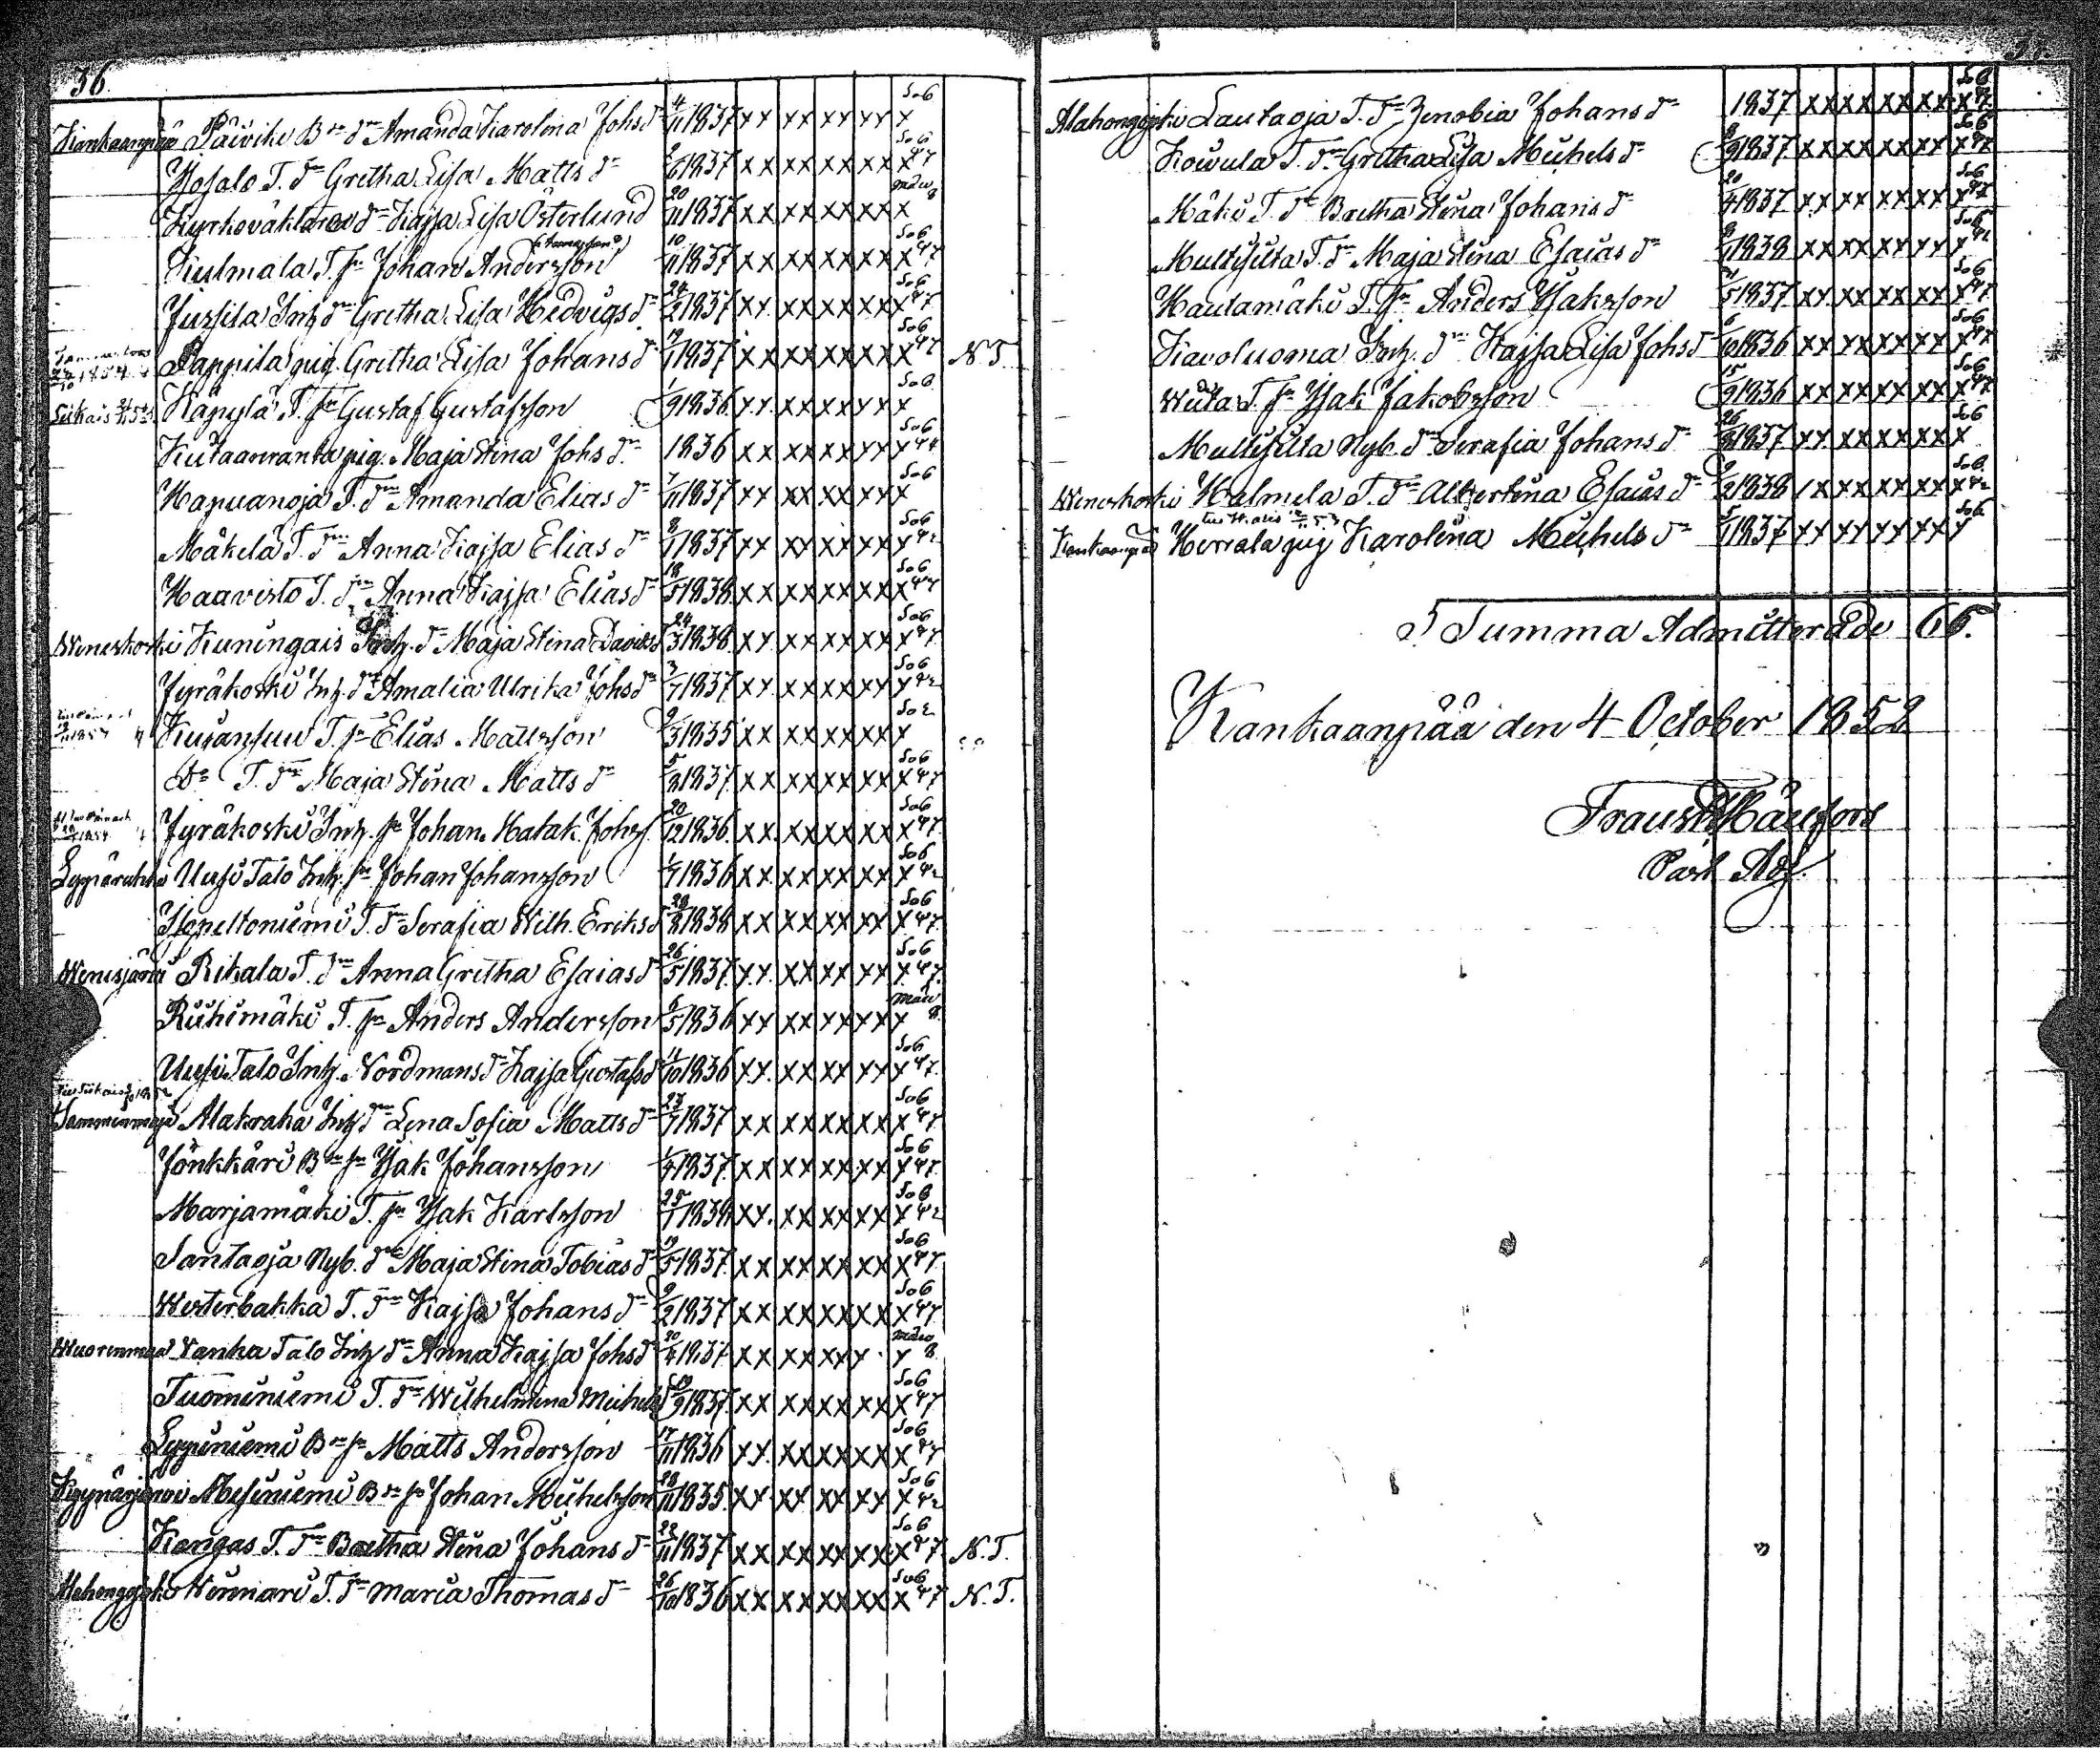 36.
Kankaanpää Päivike Bde dr Amanda Karolina Johsdr 4/11 1837 xx xx xx xx x So6
Yosalo T. dr Gretha Lisa Matts dr 1837 xx xx xx xx x 47 So6
Kyrkováktares dr Kajsa Lisa Österlund 20/11 1837 xx xx xx xx x
Kulmala T. sn Johan Andersson 10/11 1837 xx xx xx xx x 47 So6
Jussila Inh dr Gretha Lisa Hedvigs dr 24/2 1837 xx xx xx xx x 47 So6
Pappila pig. Gretha Lisa Johans dr 19/1 1837 xx xx xx xx x 47 So6 N.T.
Käpylä T. sn Gustaf Gustafsson 1/9 1836 xx xx xx xx x So6
Kutaanranta pig. Maja Stina Johs dr 1836 xx xx xx xx x 44 So6
Hapuanoja T. dr Amanda Elias dr 7/11 1837 xx xx xx xx x So6
Mäkelä T. dr Anna Kajsa Elias dr 8/1 1837 xx xx xx xx x 42 So6
Haavisto T. dr Anna Kajsa Elias dr 18/5 1838 xx xx xx xx x 47 So6
Wineskoski Kuningais Inh. dr Maja Stina Davids dr 24/3 1838 xx xx xx xx x 47 So6
Jyräkoski Inh. dr Amalia Ulrika Johs dr 3/7 1837 xx xx xx xx x 42 So6
Kusansuu T. sn Elias Mattsson 9/3 1835 xx xx xx xx x
Do T. dr Maja Stina Matts dr 5/8 1837 xx xx xx xx x 47 So6
Jyräkoski Inh. sn Johan Matak. Johss. 20/12 1836 xx xx xx xx x 47 So6
Uusi Talo Inh. sn Johan Johansson 1/7 1836 xx xx xx xx x 42 So6
T. dr Serafia Wilh. Eriks dr 28/8 1838 xx xx xx xx x 47 So6
Wenesjärvi Rihala T. dr Anna Gretha Esaias dr 26/5 1837 xx xx xx xx x 47 So6
Riihimäki T. sn Anders Andersson 6/5 1836 xx xx xx xx x
Uusi Talo Inh. Nordmans dr Kajsa Gustafs dr 4/10 1836 xx xx xx xx x 47 So6
Alakraha Inh dr Lena Sofia Matts dr 23/7 1837 xx xx xx xx x 47 So6
Jönkkäri Bde sn Isak Johansson 1/4 1837 xx xx xx xx x 47 So6
Marjamäki T. sn Isak Karlsson 25/1 1838 xx xx xx xx x 42 So6
Santaoja Nyb. dr Maja Stina Tobias dr 19/5 1837 xx xx xx xx x 47 So6
Westerbakka T. dr Kajsa Johans dr 9/2 1837 xx xx xx xx x 47 So6
Wuorenmaa Wanha Talo Inh dr Anna Kajsa Johs dr 20/4 1837 xx xx xx x x
Tuominiemi T. dr Wilhelmina Michels dr 19/9 1837 xx xx xx xx x 47 So6
Leppiniemi Bde sn Matts Andersson 17/11 1836 xx xx xx xx x 47 So6
Kyynärjärvi Mesiniemi Bde sn Johan Michelsson 28/11 1835 xx xx xx xx x 42 So6
Kangas T. dr Bretha Stina Johans dr 22/11 1837 xx xx xx xx x 47 So6 N.T.
Niinnari T. dr Maria Thomas dr 26/10 1836 xx xx xx xx x 47 So6 N.T.
Alahongojoki Lautaoja T. dr Zenobia Johans dr 1837 xx xx xx xx x 47 So6
Koivula T. dr Gretha Lisa Michels dr 8/9 1837 xx xx xx xx x 47 So6
Mäki T. dr Bretha Stina Johans dr 20/4 1837 xx xx xx xx x 47 So6
Multisilta T. dr Maja Stina Esaias dr 1838 xx xx xx xx x 42 So6
Hautamäki T. sn Anders Isaksson 21/5 1837 xx xx xx xx x 47 So6
Karoluoma Inh. dr Kajsa Lisa Johs dr 6/10 1836 xx xx xx xx x 47 So6
Wiita T. sn Isak Jakobsson 15/9 1836 xx xx xx xx x 47 So6
Multisilta Nyb. dr Serafia Johans dr 26/8 1837 xx xx xx xx x So6
Wineskoski Halmela T. dr Albertina Esaias dr 9/2 1838 xx xx xx xx x 42 So6
Kankaanpää Herrala pig Karolina Michels dr 5/1 1837 xx xx xx xx x So6
Summa Admitterade 66.
Kankaanpää den 4 October 1852
Past. Adj.